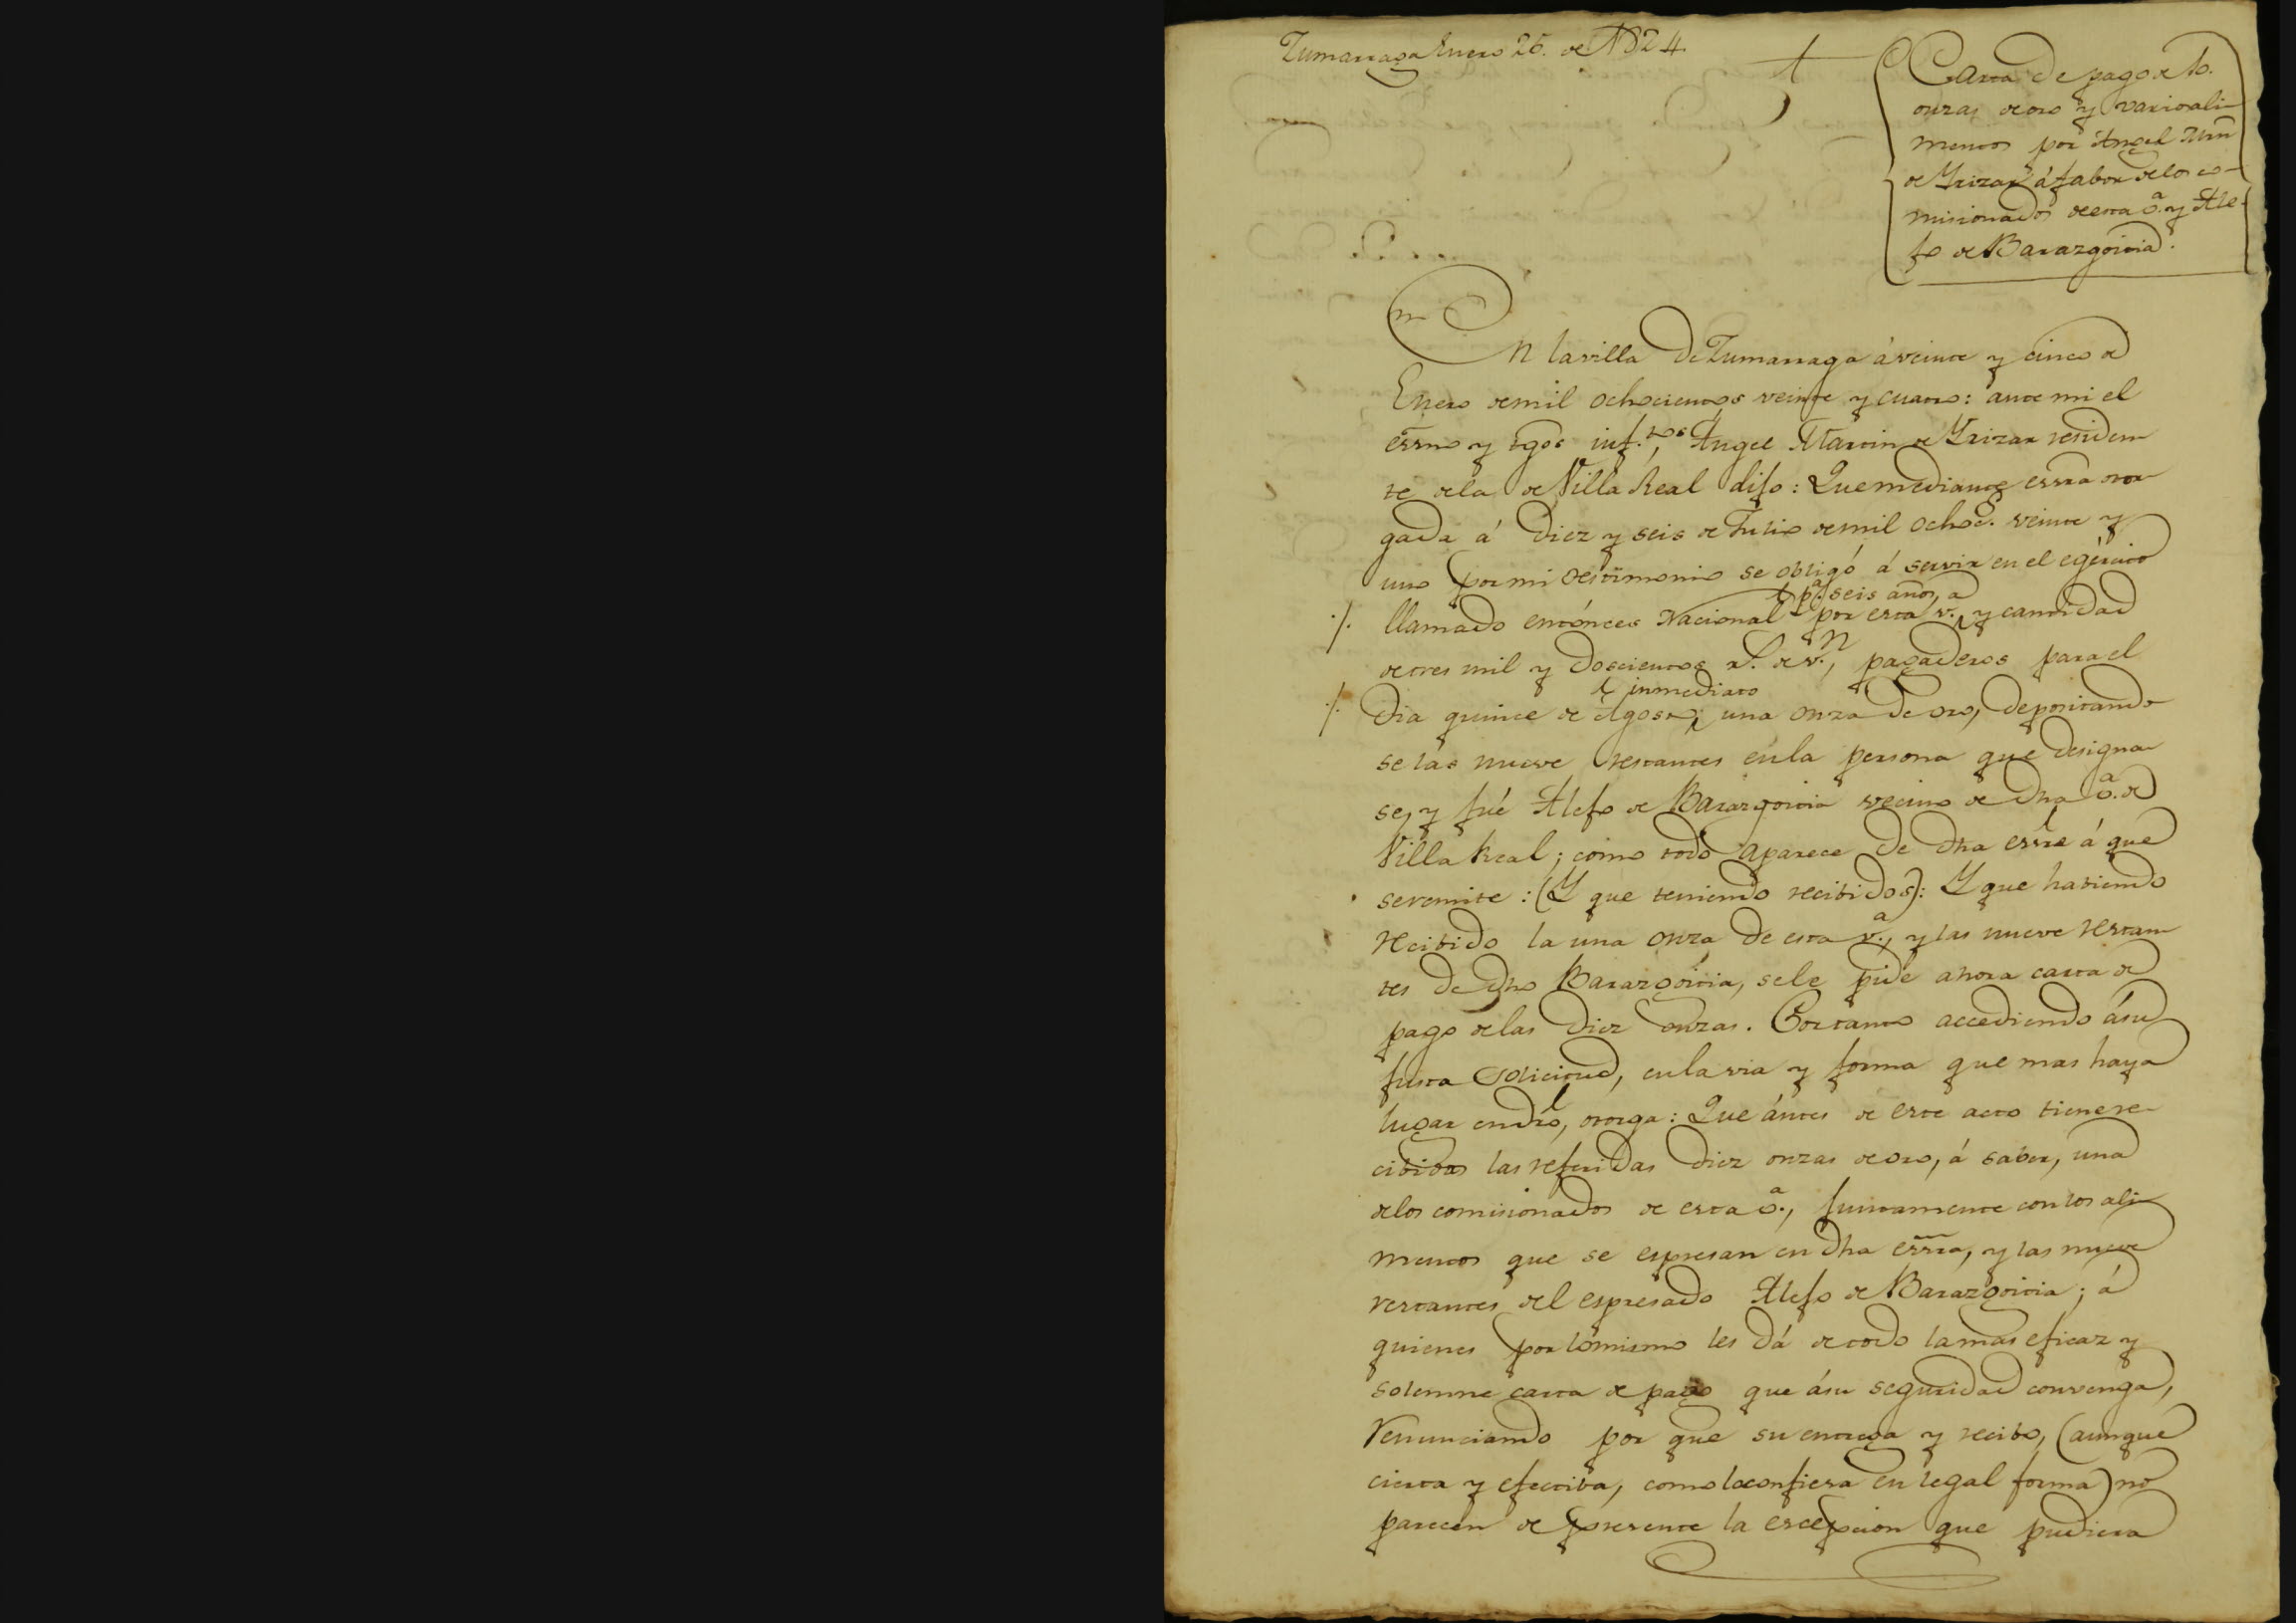 Zumarraga Enero 25. de 1824.
Carta de pago de 10.
onzas de oro y varios ali-
mentos por Angel Mrn
de Yrizar á fabor de los co-
misionados de esta va. y Ale-
jo de Barazgoitia.
En la villa de Zumarraga á veinte y cinco de
Enero de mil ochocientos veinte y cuatro: ante mi el
essno y tgos inf.tos, Angel Martin de Yrizar residen-
te de la de Villa Real dijo: Que mediante essra otor-
gada á diez y seis de Julio de mil ochoc. veinte y
uno por mi testimonio se obligó á servir en el egército
pa. seis años, a
./. llamado entónces Nacional por esta v. y cantidad
de tres mil y doscientos rs. de v.n, pagaderos para el
inmediato
./. dia quince de Agosto, una onza de oro, depositando-
se las nueve restantes en la persona que designa-
se, y fué Alejo de Barazgoitia vecino de dha va. de
Villa Real; como todo aparece de dha essre á que
se remite: (Y que teniendo recibidos): Y que habiendo
recibido la una onza de esta va., y las nueve restan-
tes de dho Barazgoitia, se le pide ahora carta de
pago de las diez onzas. Por tanto accediendo á su
justa solicitud, en la via y forma que mas haya
lugar en dro, otorga: Que ántes de este acto tiene re-
cibidas las referidas diez onzas de oro, á saber, una
de los comisionados de esta va., juntamente con los ali-
mentos que se espresan en dha essra, y las nueve
restantes del espresado Alejo de Barazgoitia; á
quienes por lo mismo les dá de todo la mas eficaz y
solemne carta de pago que á su seguridad convenga,
renunciando por que su entrega y recibo, (aunque
cierta y efectiba, como lo confiesa en legal forma) no
parecen de presente la escepcion que pudiera